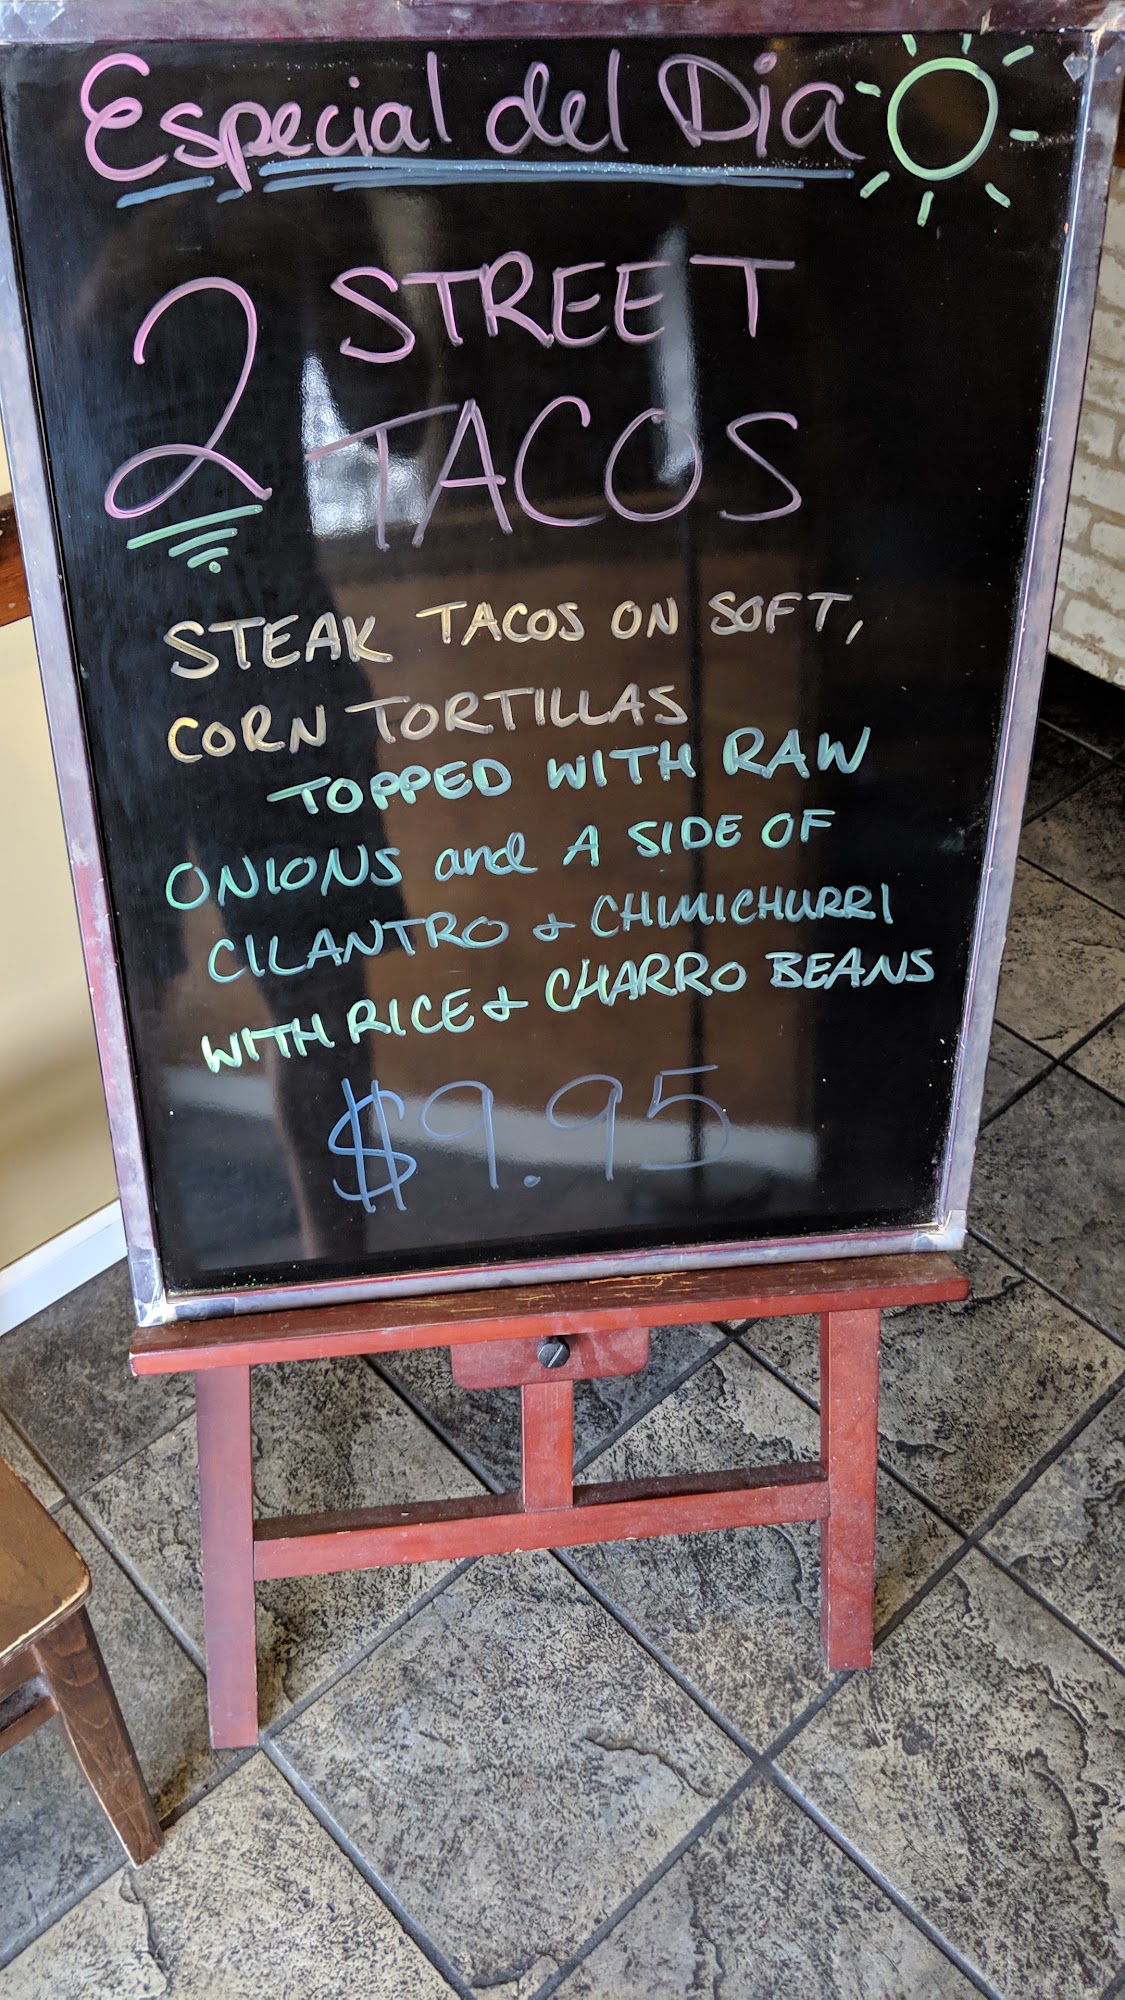 Especial del Dia
2 STREET
TACOS
STEAK TACOS ON SOFT,
CORN TORTILLAS
TOPPED WITH RAW
ONIONS and A SIDE OF
CILANTRO & CHIMICHURRI
WITH RICE & CHARRO BEANS
$9.95